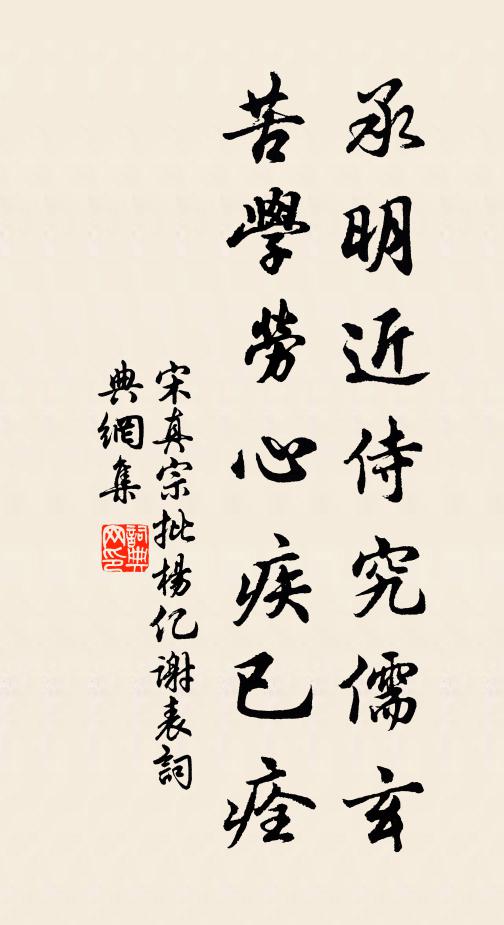 承明近侍究儒玄
苦學勞心疾已痊
宋真宗批楊億謝表詞
典網集
詞典網印